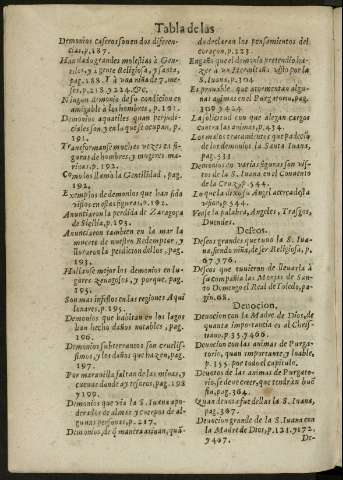 Tabla de las
Demonios caseros son en dos diferen-
cias, p.187.
Han dado grandes molestias à Gen-
tiles, y a gente Religiosa, y santa,
pag.188. Y à vna niña de 7. me-
ses, p.218. y 224. &c.
Ningun demonio de su condicion es
amigable à los hombres, p.191.
Demonios aquatiles quan perjudi-
ciales son, y en lo que se ocupan, p.
191.
Transformanse muchas vezes en fi-
guras de hombres, y mugeres ma-
rinas, p.192.
Como los llamò la Gentilidad, pag.
192.
Exemplos de demonios que han sido
vistos en estas figuras, p.192.
Anunciaron la perdida de Zaragoça
de Sicilia, p.193.
Anunciaron tambien en la mar la
muerte de nuestro Redemptor, y
lloraron la perdicion dellos, pag.
193.
Hallanse mejor los demonios en lu-
gares cenagosos, y porque, pag.
195.
Son mas infestos en las regiones Aqui
lonares, p.195.
Demonios que habitan en los lagos
han hecho daños notables, pag.
196.
Demonios subterraneos son cruelis-
simos, y los daños que hazen, pag.
197.
Por marauilla saltan de las minas, y
cueuas donde ay tesoros, pag.198
y 199.
Demonios que via la S. Iuana apo-
derados de almas y cuerpos de al-
gunas personas, p.217.
Demonios, de q̃ manera atisuan, quã-
do declaran los pensamientos del
coraçon, p.223.
Engaño que el demonio pretendiò ha-
zer à vn Hermitaño visto por la
S. Iuana, p.304.
Es prouable que atormentan algu-
nas animas en el Purgatorio, pag.
309. y 424.
La solicitud con que alegan cargos
contra las animas, p.434.
Los malos tratamientos que padeciò
de los demonios la Santa Iuana,
pag.533.
Demonios en varias figuras son vis-
tos de la S. Iuana en el Conuento
de la Cruz, p.544.
Lo que la dixo su Angel acerca desta
vision, p.544.
Vease la palabra, Angeles, Trasgos,
Duendes.
Deseos.
Deseos grandes que tuuo la S. Iua-
na, siendo niña, de ser Religiosa, p.
67. y 76.
Deseos que tuuieron de lleuarla à
su compañia las Monjas de San-
to Domingo el Real de Toledo, pa-
gin.68.
Deuocion.
Deuocion con la Madre de Dios, de
quanta importancia es al Chris-
tiano, p.35. y 466.
Deuocion con las animas de Purga-
torio, quan importante, y loable,
p.355. por todo el capitulo.
Deuotos de las animas de Purgato-
rio, se deue creer, que tendran buẽ
fin, pag.364.
Quan deuota fue dellas la S. Iuana,
pag.367.
Deuocion grande de la S. Iuana con
la Madre de Dios, p.121. y 172.
y 407.
De-